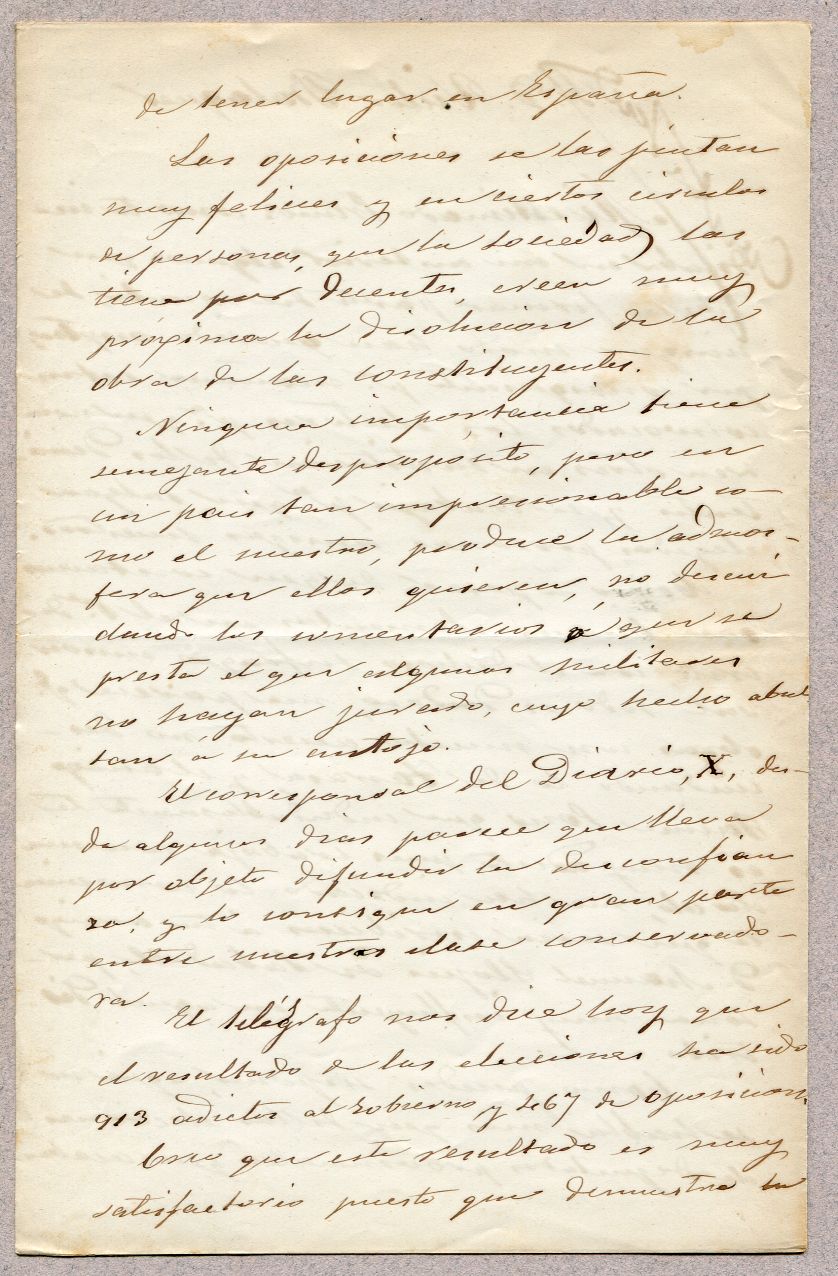 de tener lugar en España.
Las oposiciones se las pintan
muy felices y en ciertos circulos
de personas, que la sociedad las
tiene por decentes, creen muy
próxima la disolucion de la
obra de las constituyentes.
Ninguna importancia tiene
semejante despropósito, pero en
un pais tan impresionable co-
mo el nuestro, produce la admos-
fera que ellos quieren, no descui
dando los comentarios á que se
presta el que algunos militares
no hayan jurado, cuyo hecho abul
tan á su antojo.
El corresponsal del Diario, X, des-
de algunos dias parece que lleva
por objeto difundir la desconfian
za, y lo consigue en gran parte
entre nuestras clase conservado-
ra.
El telégrafo nos dice hoy que
el resultado de las elecciones ha sido
913 adictos al Gobierno y 467 de oposicion.
Creo que este resultado es muy
satisfactorio puesto que demuestra la